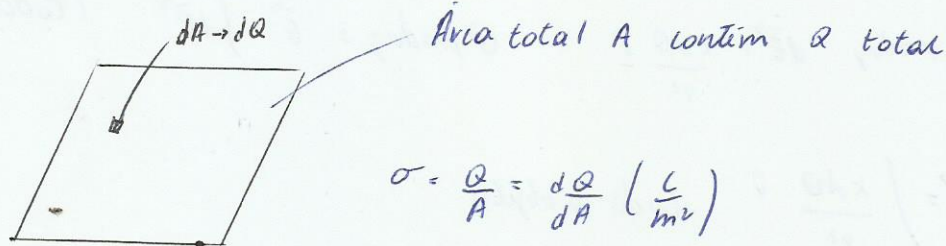 dA→dQ
Área total A contém Q total
σ = Q/A = dQ/dA (C/m²)